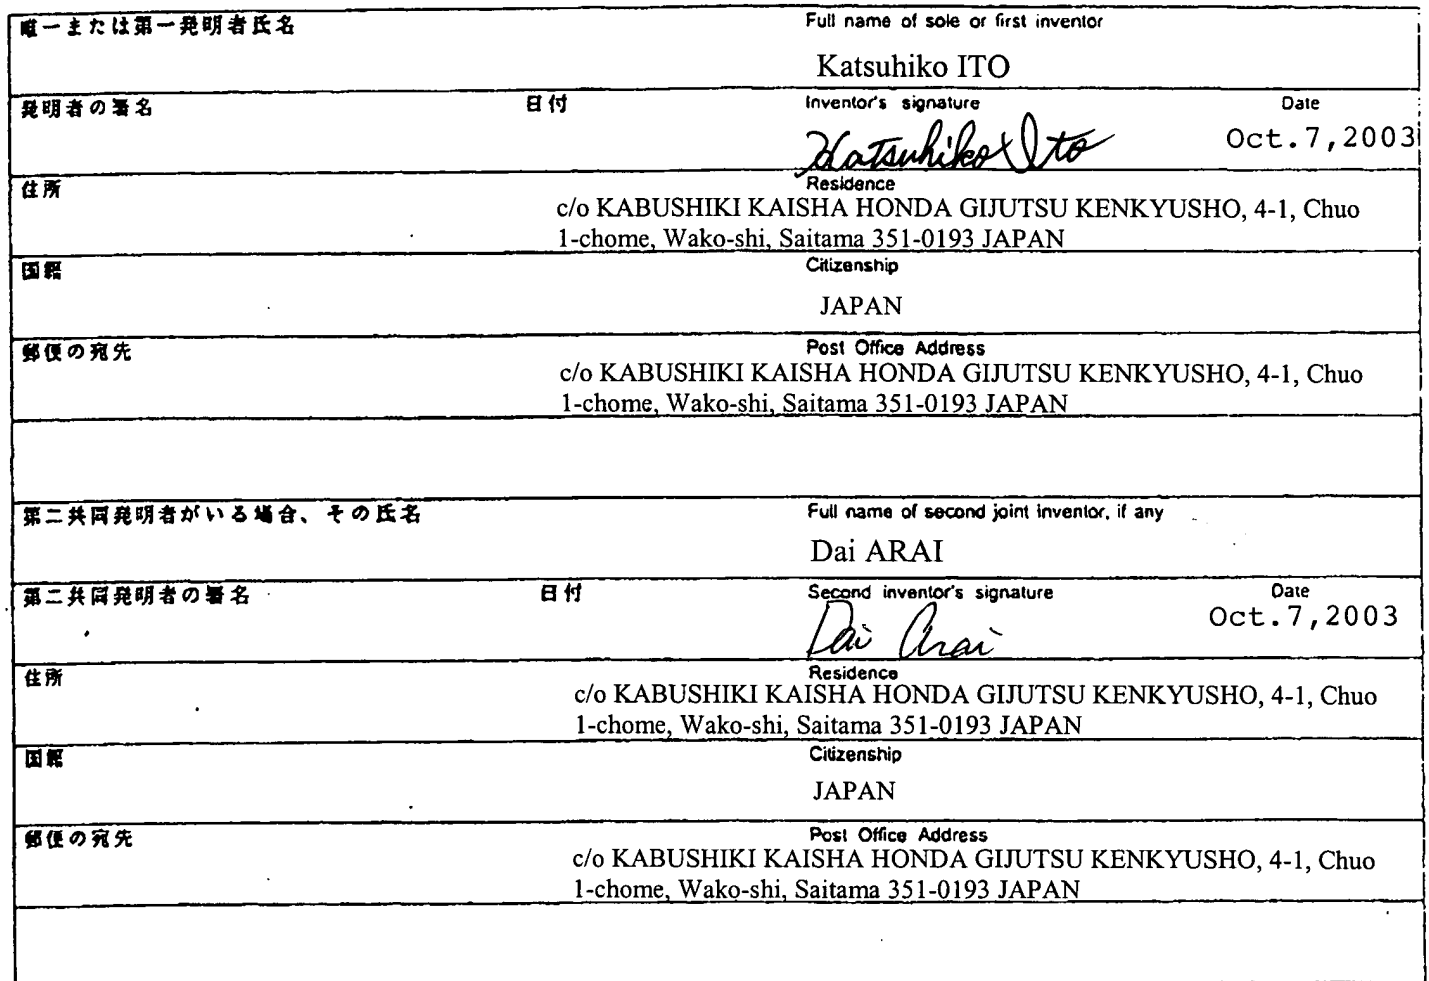 唯一または第一発明者氏名 Full name of sole or first inventor
Katsuhiko ITO
発明者の署名 日付 Inventor's signature Date
Katsuhiko Ito Oct.7,2003
住所 Residence
c/o KABUSHIKI KAISHA HONDA GIJUTSU KENKYUSHO, 4-1, Chuo
1-chome, Wako-shi, Saitama 351-0193 JAPAN
国籍 Citizenship
JAPAN
郵便の宛先 Post Office Address
c/o KABUSHIKI KAISHA HONDA GIJUTSU KENKYUSHO, 4-1, Chuo
1-chome, Wako-shi, Saitama 351-0193 JAPAN
第二共同発明者がいる場合、その氏名 Full name of second joint inventor, if any
Dai ARAI
第二共同発明者の署名 日付 Second inventor's signature Date
Dai Arai Oct.7,2003
住所 Residence
c/o KABUSHIKI KAISHA HONDA GIJUTSU KENKYUSHO, 4-1, Chuo
1-chome, Wako-shi, Saitama 351-0193 JAPAN
国籍 Citizenship
JAPAN
郵便の宛先 Post Office Address
c/o KABUSHIKI KAISHA HONDA GIJUTSU KENKYUSHO, 4-1, Chuo
1-chome, Wako-shi, Saitama 351-0193 JAPAN